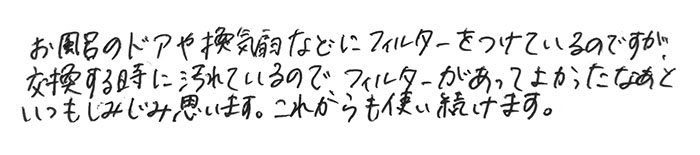 お風呂のドアや換気扇などにフィルターをつけているのですが、
交換する時に汚れているので、フィルターがあってよかったなぁと
いつもしみじみ思います。これからも使い続けます。